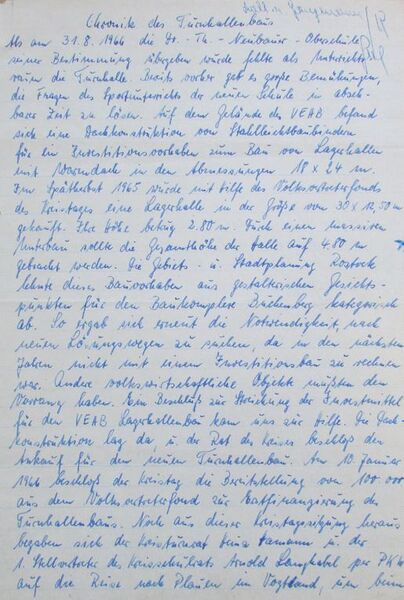 Chronik des Turnhallenbaus
Als am 31.8.1966 die Dr.-Th.-Neubauer-Oberschule
seiner Bestimmung übergeben wurde fehlte als Unterrichts
raum die Turnhalle. Bereits vorher gab es große Bemühungen,
die Fragen des Sportunterrichts der neuen Schule in abseh-
barer Zeit zu lösen. Auf dem Gelände des VEAB befand
sich eine Dachkonstruktion von Stahlleichtbaubindern
für ein Investitionsvorhaben zum Bau von Lagerhallen
mit Warmdach in den Abmessungen 18 x 24 m.
Im Spätherbst 1965 wurde mit Hilfe des Volksvertreterfonds
des Kreistages eine Lagerhalle in der Größe von 30 x 12,50 m
gekauft. Ihre Höhe betrug 2.80 m. Durch einen massiven
Unterbau sollte die Gesamthöhe der Halle auf 4.80 m
gebracht werden. Die Gebiets- u. Stadtplanung Rostock
lehnte dieses Bauvorhaben aus gestalterischen Gesichts-
punkten für den Baukomplex kategorisch
ab. So ergab sich erneut die Notwendigkeit, nach
neuen Lösungswegen zu suchen, da in den nächsten
Jahren nicht mit einem Investitionsbau zu rechnen
war. Andere volkswirtschaftliche Objekte mußten den
Vorrang haben. Ein Beschluß zur Streichung der Investmittel
für den VEAB Lagerhallenbau kam uns zur Hilfe. Die Dach-
konstruktion lag da u. der Rat des Kreises beschloß den
Ankauf für den neuen Turnhallenbau. Am 10. Januar
1966 beschloß der Kreistag die Bereitstellung von 100.000
aus dem Volksvertreterfond zur Mitfinanzierung des
Turnhallenbaus. Noch aus dieser Kreistagssitzung heraus
begaben sich der Kreisturnrat u. der
1. Stellvertreter des Kreisschulrats Arnold Langhabel per PKW
auf die Reise nach Plauen im Vogtland, um beim